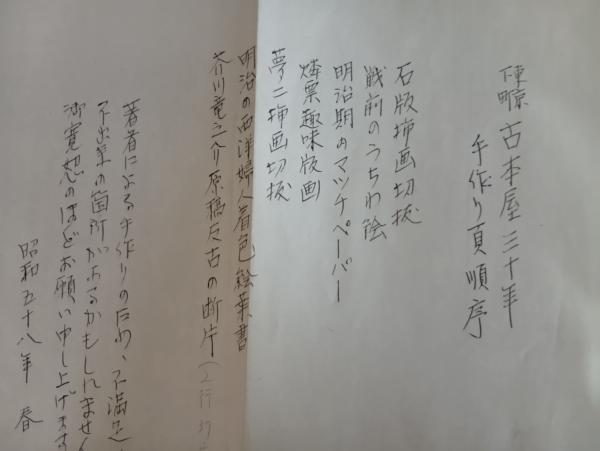 古本屋三十年
手作り頁順序
石版挿画切抜
戦前のうちわ絵
明治期のマッチペーパー
燐票趣味版画
夢二挿画切抜
明治の西洋婦人着色絵葉書
芥川竜之介原稿反古の断片(2行
著者による手作りのため、不満足
不出来の箇所があるかもしれません
御寛恕のほどお願い申し上げます
昭和五十八年 春